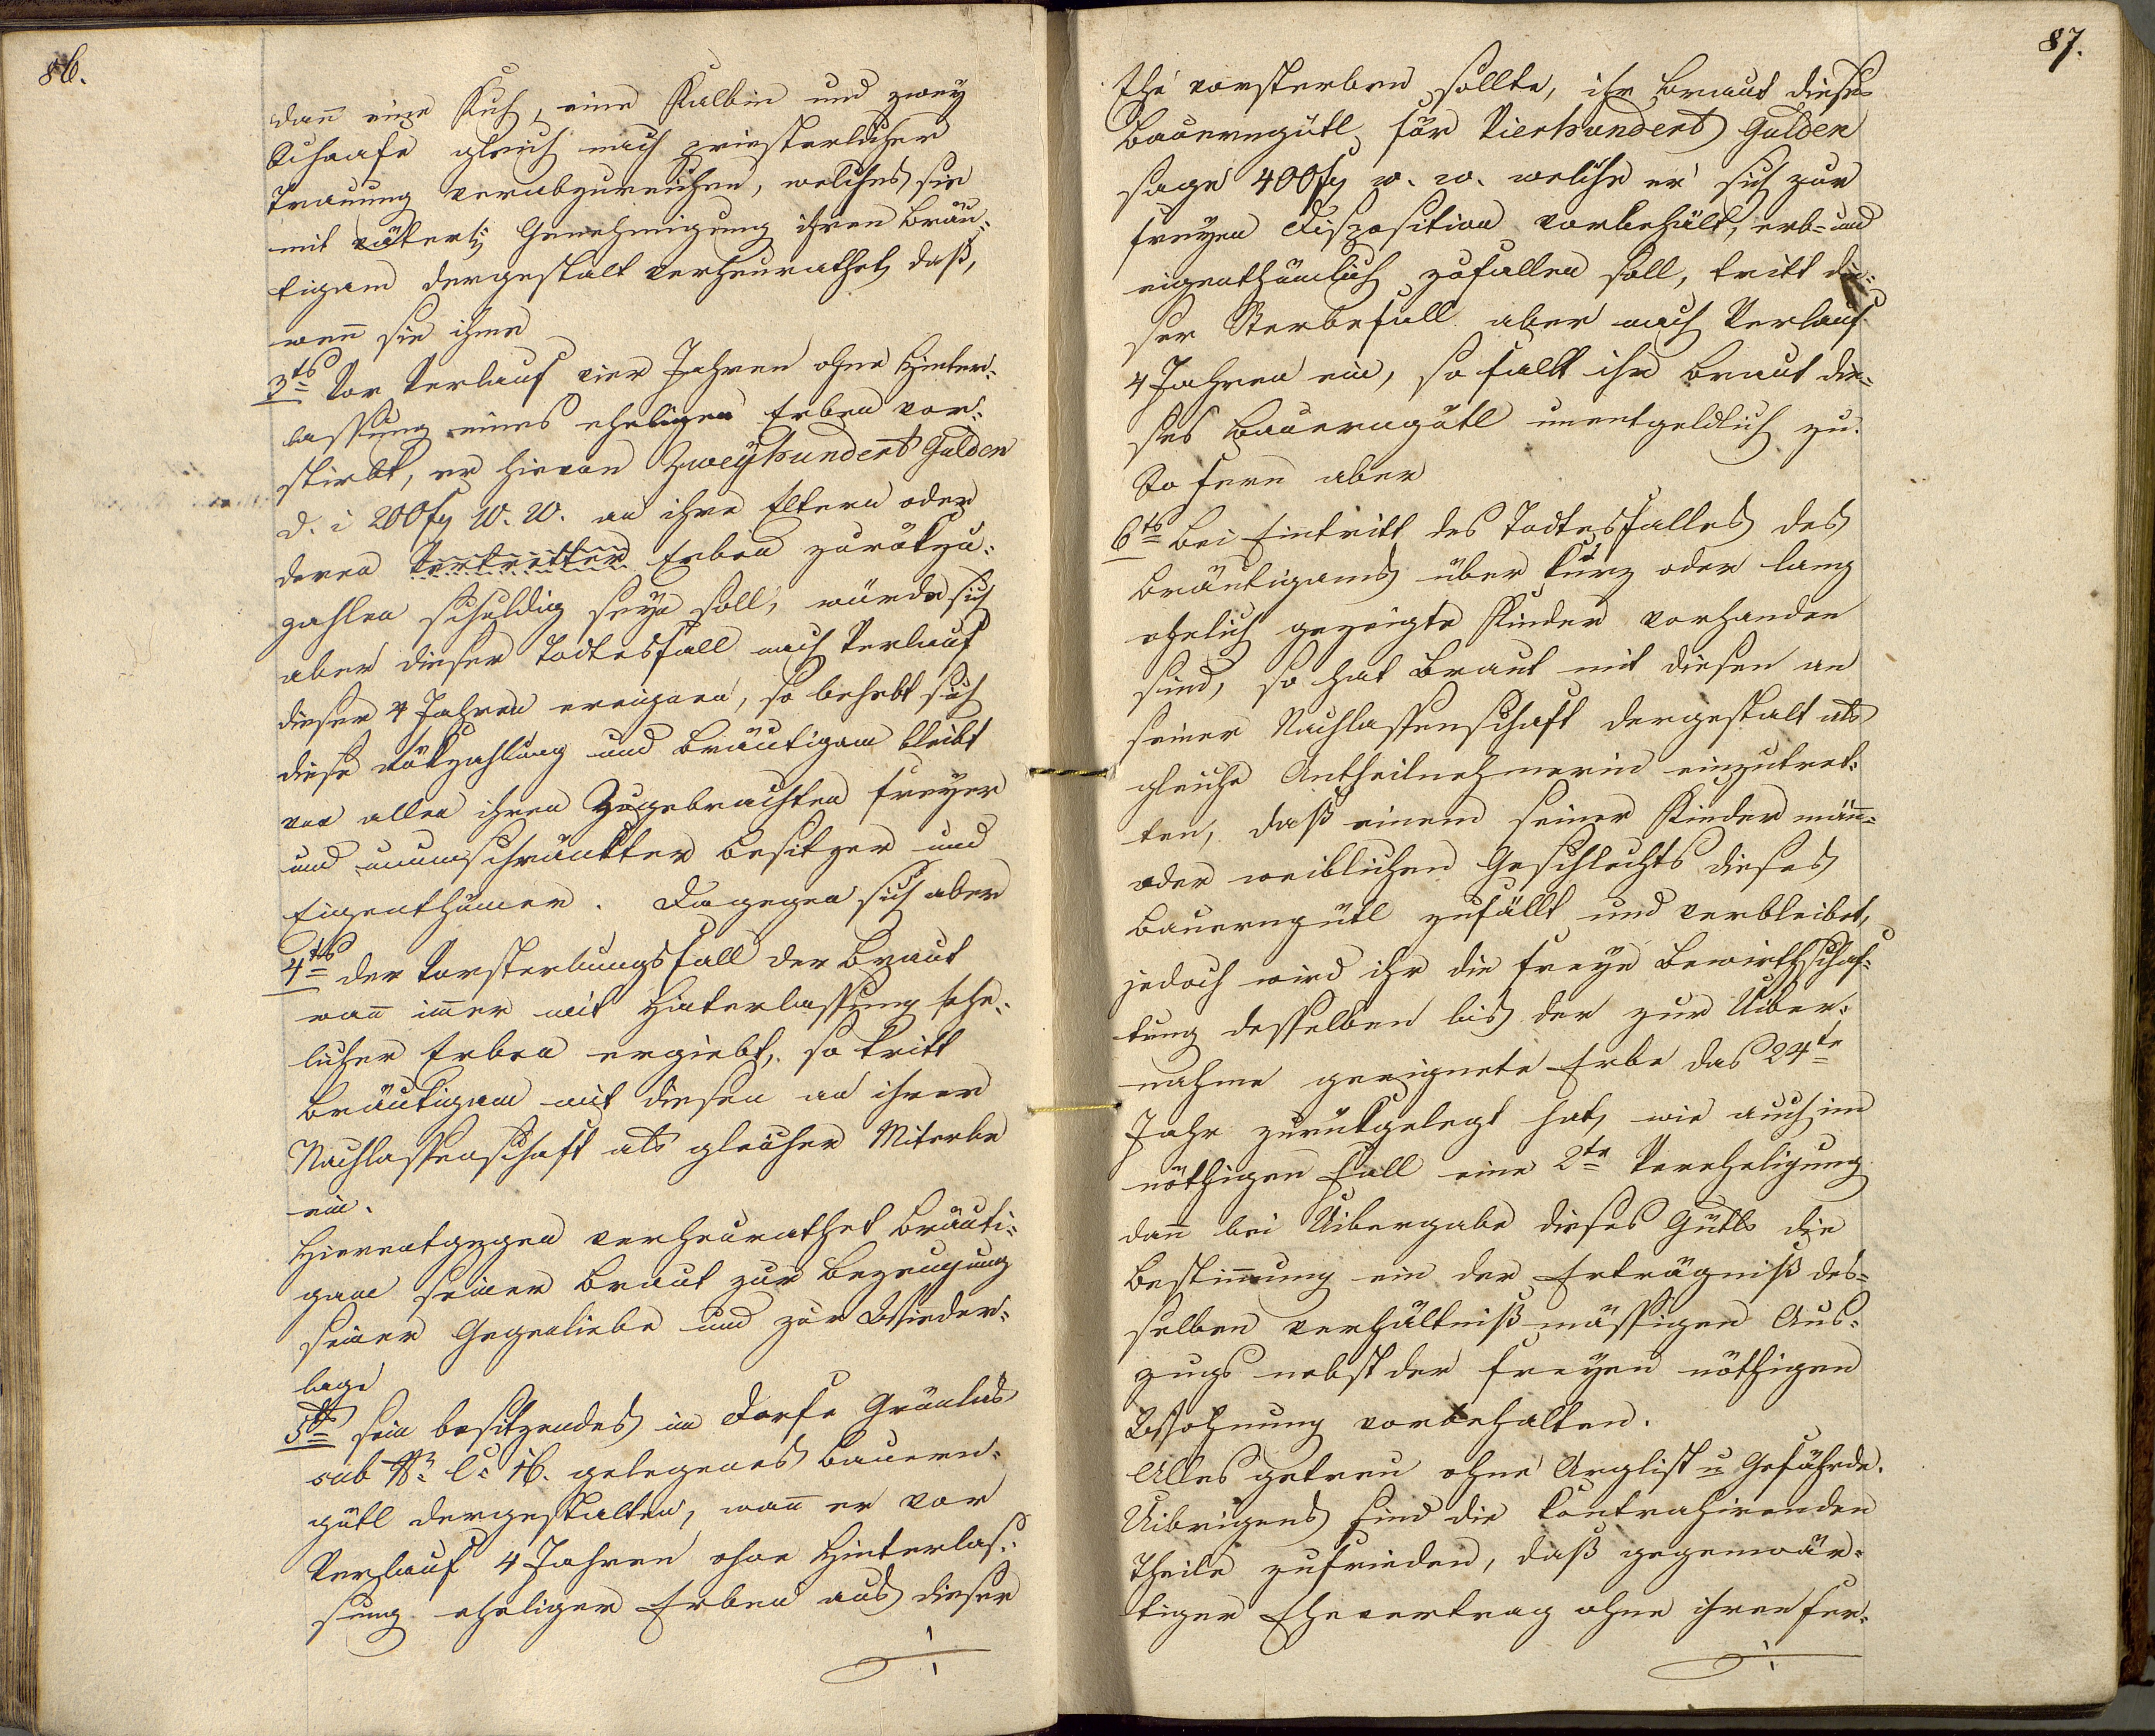 86.
dan̄ eine Kuh, eine Kalbin und zwey
Schaafe gleich nach priesterlicher
Trauung verabzureichen, welches sie
mit väterl. Genehmigung ihren Bräu-
tigam dergestalt verheurathet, daß,
wen̄ sie ihme
3tens Vor Verlauf vier Jahren ohne Hinter-
lassung eines eheligen Erben vor-
stirbt, er hievon Zweyhundert Gulden
d. i 200 fl W. W. an ihre Eltern oder
deren Vertretter Erben zurükzu-
zahlen schuldig seyn soll, würde sich
aber dieser Todtesfall nach Verlauf
dieser 4 Jahren ereignen, so behebt sich
diese Rükzahlung und Bräutigam bleibt
von allen ihren Zugebrachten freyer
und unumschränkter Besitzer und
Eigenthümer. Dagegen sich aber
4tens der Vorsterbungsfall der Braut
wan̄ im̄er mit Hinterlassung ehe-
licher Erben ergiebt, so tritt
Bräutigam mit diesen an ihrer
Nachlassenschaft als gleicher Miterbe
ein.
Hierentgegen verheurathet Bräuti-
gam seiner Braut zur Bezeugung
seiner Gegenliebe und zur Wieder-
lage
5tens sein besitzendes im Dorfe
sub Nr. C. 16. gelegenes Bauern-
gütl dergestalten, wan̄ er vor
Verlauf 4 Jahren ohne Hinterlas-
sung eheliger Erben aus dieser
87.
Ehe vorsterben sollte, ihr Braut dieses
Bauerngütl für Vierhundert Gulden
sage 400 fl w. w. welche er sich zur
freyen Disposition vorbehält, erb- und
eigenthümlich zufallen soll, tritt die-
ser Sterbefall aber nach Verlauf
4 Jahren ein, so fällt ihr Braut die-
ses Bauerngütl unentgeldlich zu.
So fern aber
6tens Bei Eintritt des Todtesfalles des
Bräutigams über kurz oder lang
ehelich gezeigte Kinder vorhanden
sind, so hat Braut mit diesen an
seiner Nachlassenschaft dergestalt als
gleiche Antheilnehmerin einzutret-
ten, daß einem seiner Kinder män̄-
oder weiblichen Geschlechts dieses
Bauerngütl zufällt und verbleibet,
jedoch wird ihr die freye Bewirthschaf-
tung desselben bis der zur Uiber-
nahme geeignete Erbe das 24te
Jahr zurükgelegt hat, wie auch im
nöthigen Fall eine 2te Vereheligung
dan̄ bei Uibergabe dieses Gütls die
Bestim̄ung ein der Erträgniß des-
selben verhältnißmässigen Aus-
zugs nebst der freyen nöthigen
Wohnung vorbehalten.
Alles getreu ohne Arglist u Gefährde.
Uibrigens sind die kontrahirenden
Theile zufrieden, daß gegenwär-
tiger Ehevertrag ohne ihren fer-